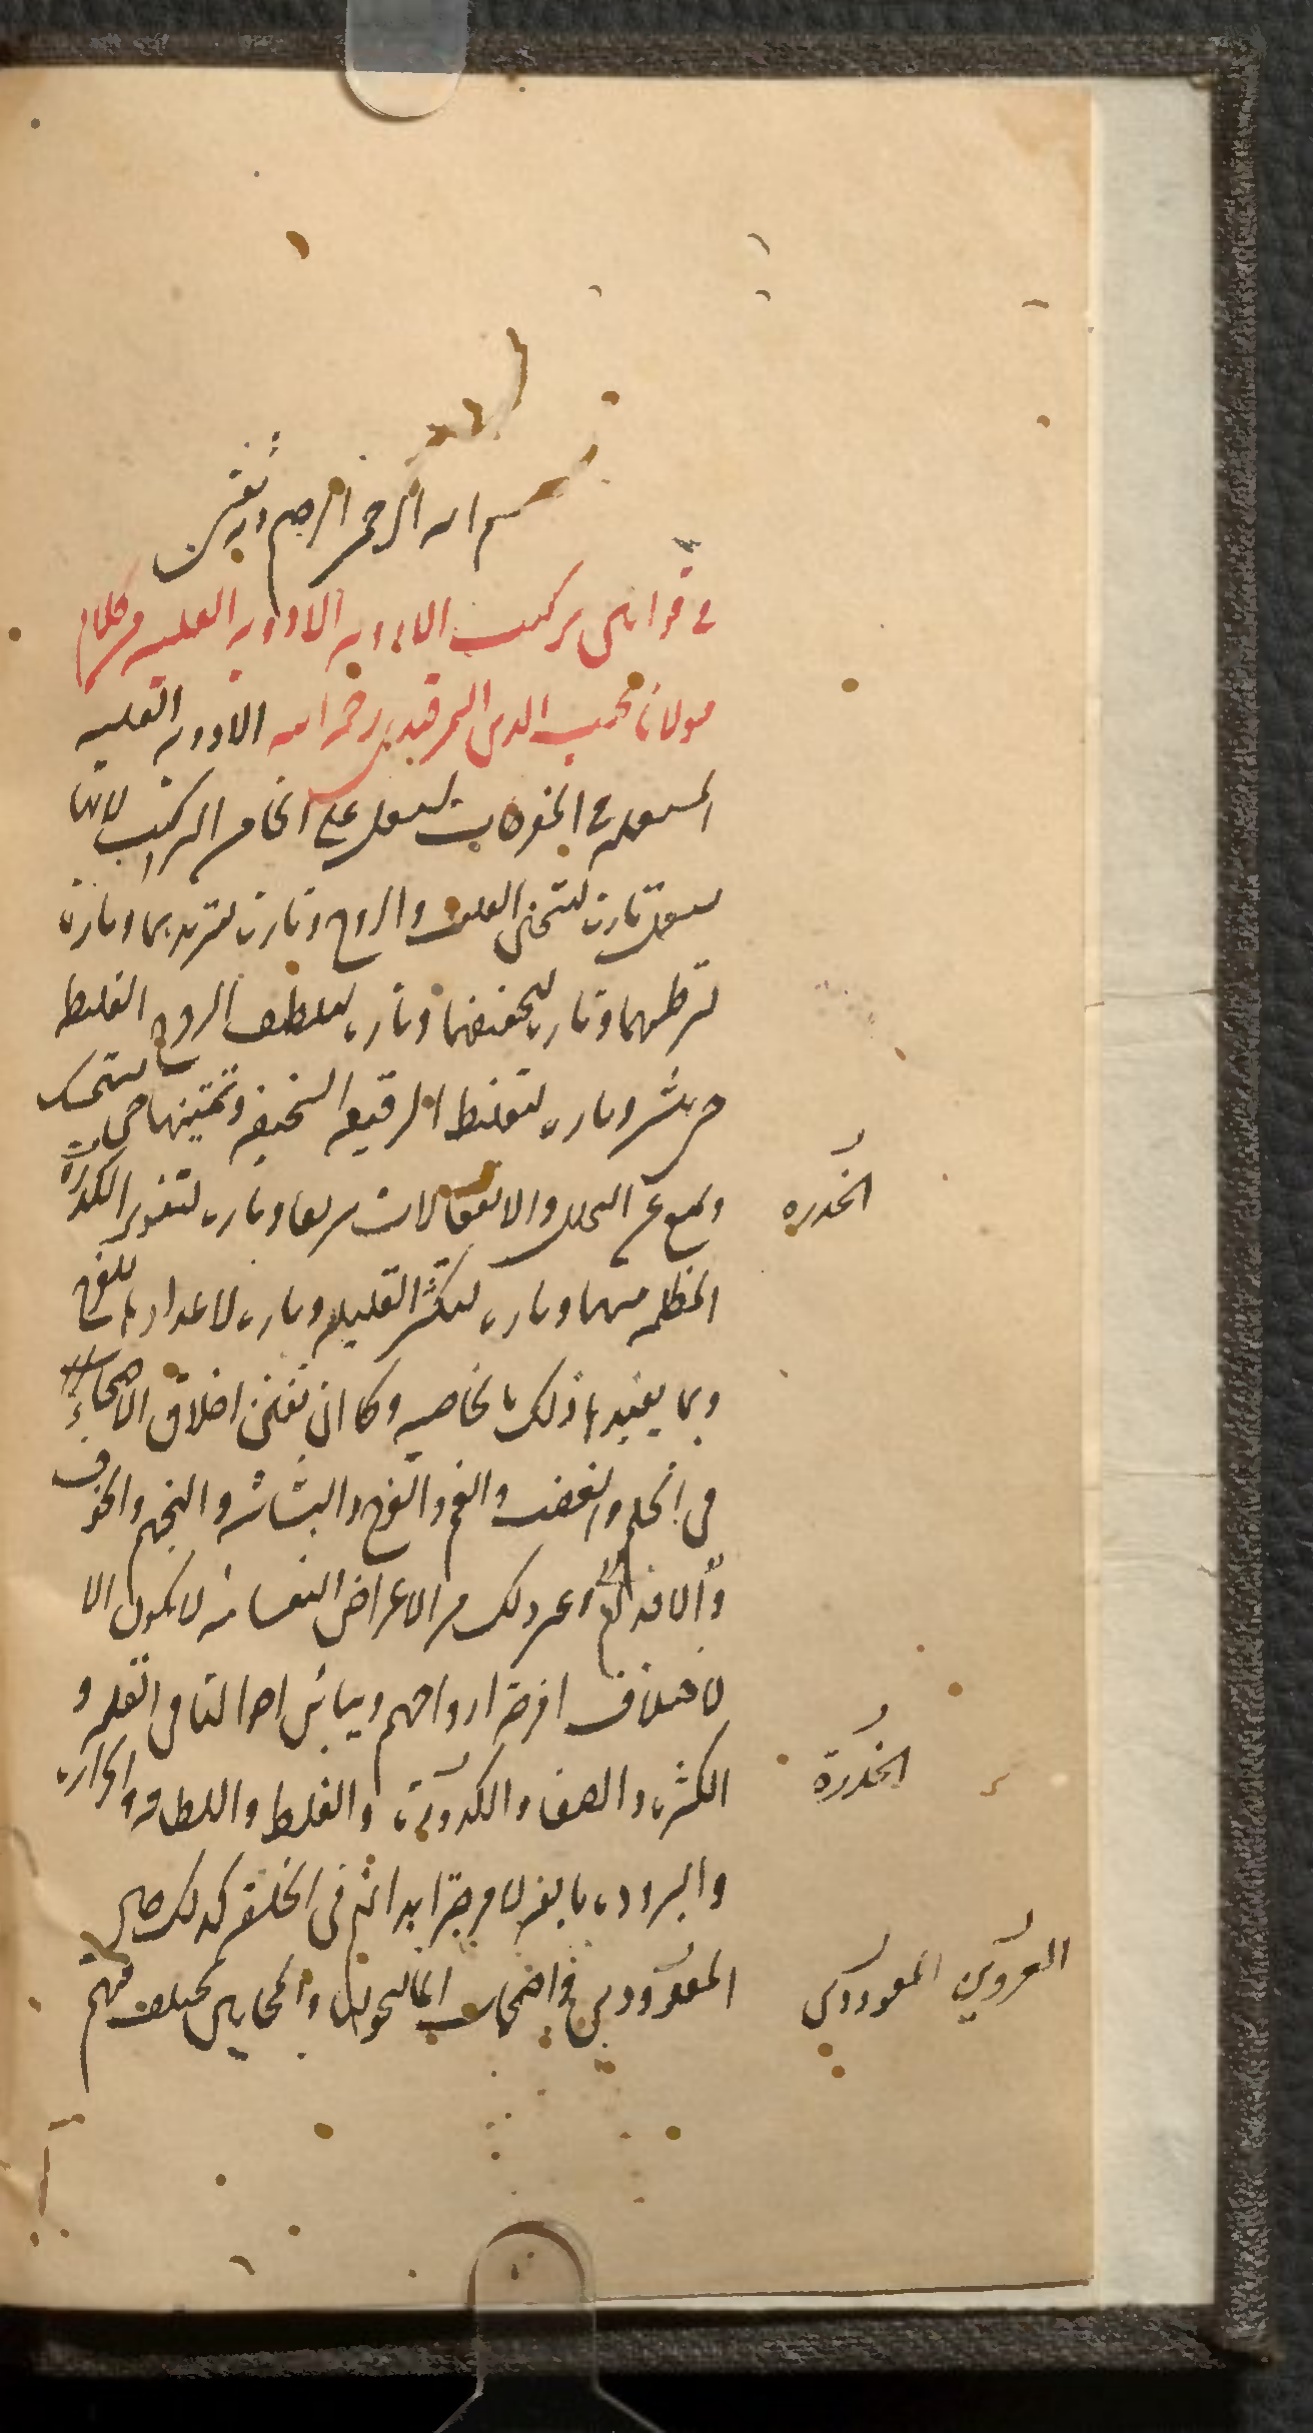 بسم الله الرحمن الرحيم وبه نقتي
في قوانين تركيب الادويه الادويه القلبيه من كلام
مولانا نجيب الدين السمرقندي رحمه الله الادويه القلبيه
المستعمله في المفرحات تستعمل على انحاء من التركيب لانها
تستعمل تارة لتسخين القلب والروح وتارة لتبريدهما وتارة
لترطيبهما وتاره لتجفيفهما وتاره لتلطيف الروح الغليظ
حتى ينتشر وتاره لتغليظ الرقيقه السخيفه وتمتينها حتى تستمسك
وتمتنع عن التحلل والانفعالات سريعا وتاره لتنوير الكدرة
المظلمه منها وتاره لتكثير القليله وتاره لاعدادها للفرح
وبما يفيدها ذلك بالخاصيه وكما ان تفنن اخلاق الاصحاء
في الحلم والغضب والغم والفرح والبشاشه والتجهم والخوف
والاقدام وغير ذلك من الاعراض النفسانيه لا يكون الا
لاختلاف امزجة ارواحهم وتباين احوالها في القله و
الكثره والصفا والكدورة والغلظ واللطافه والحراره
والبروده تابعة لامزجة ابدانهم في الخلقه كذلك حال
الممرورين في اصحاب الماليخوليا والمجانين تختلف فيهم